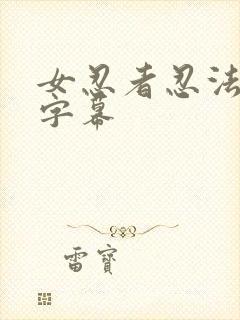 女忍者忍法
字幕
雷寶